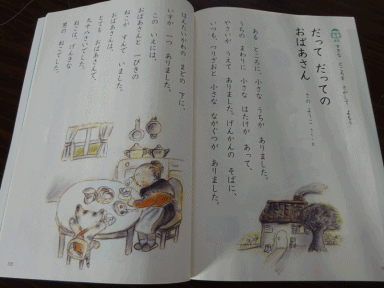 だって だっての
おばあさん
ある ところに、小さな うちが ありました。
うちの まわりに 小さな はたけが あって、
やさいが うえて ありました。げんかんの そばに、
いつも、つりざおと 小さな ながぐつが ありました。
いすが 一つ ありました。
この いえには、
おばあさんと 一ぴきの
ねこが すんで いました。
とても おばあさんで、
九十八さいでした。
ねこは、げんきな
男の ねこでした。